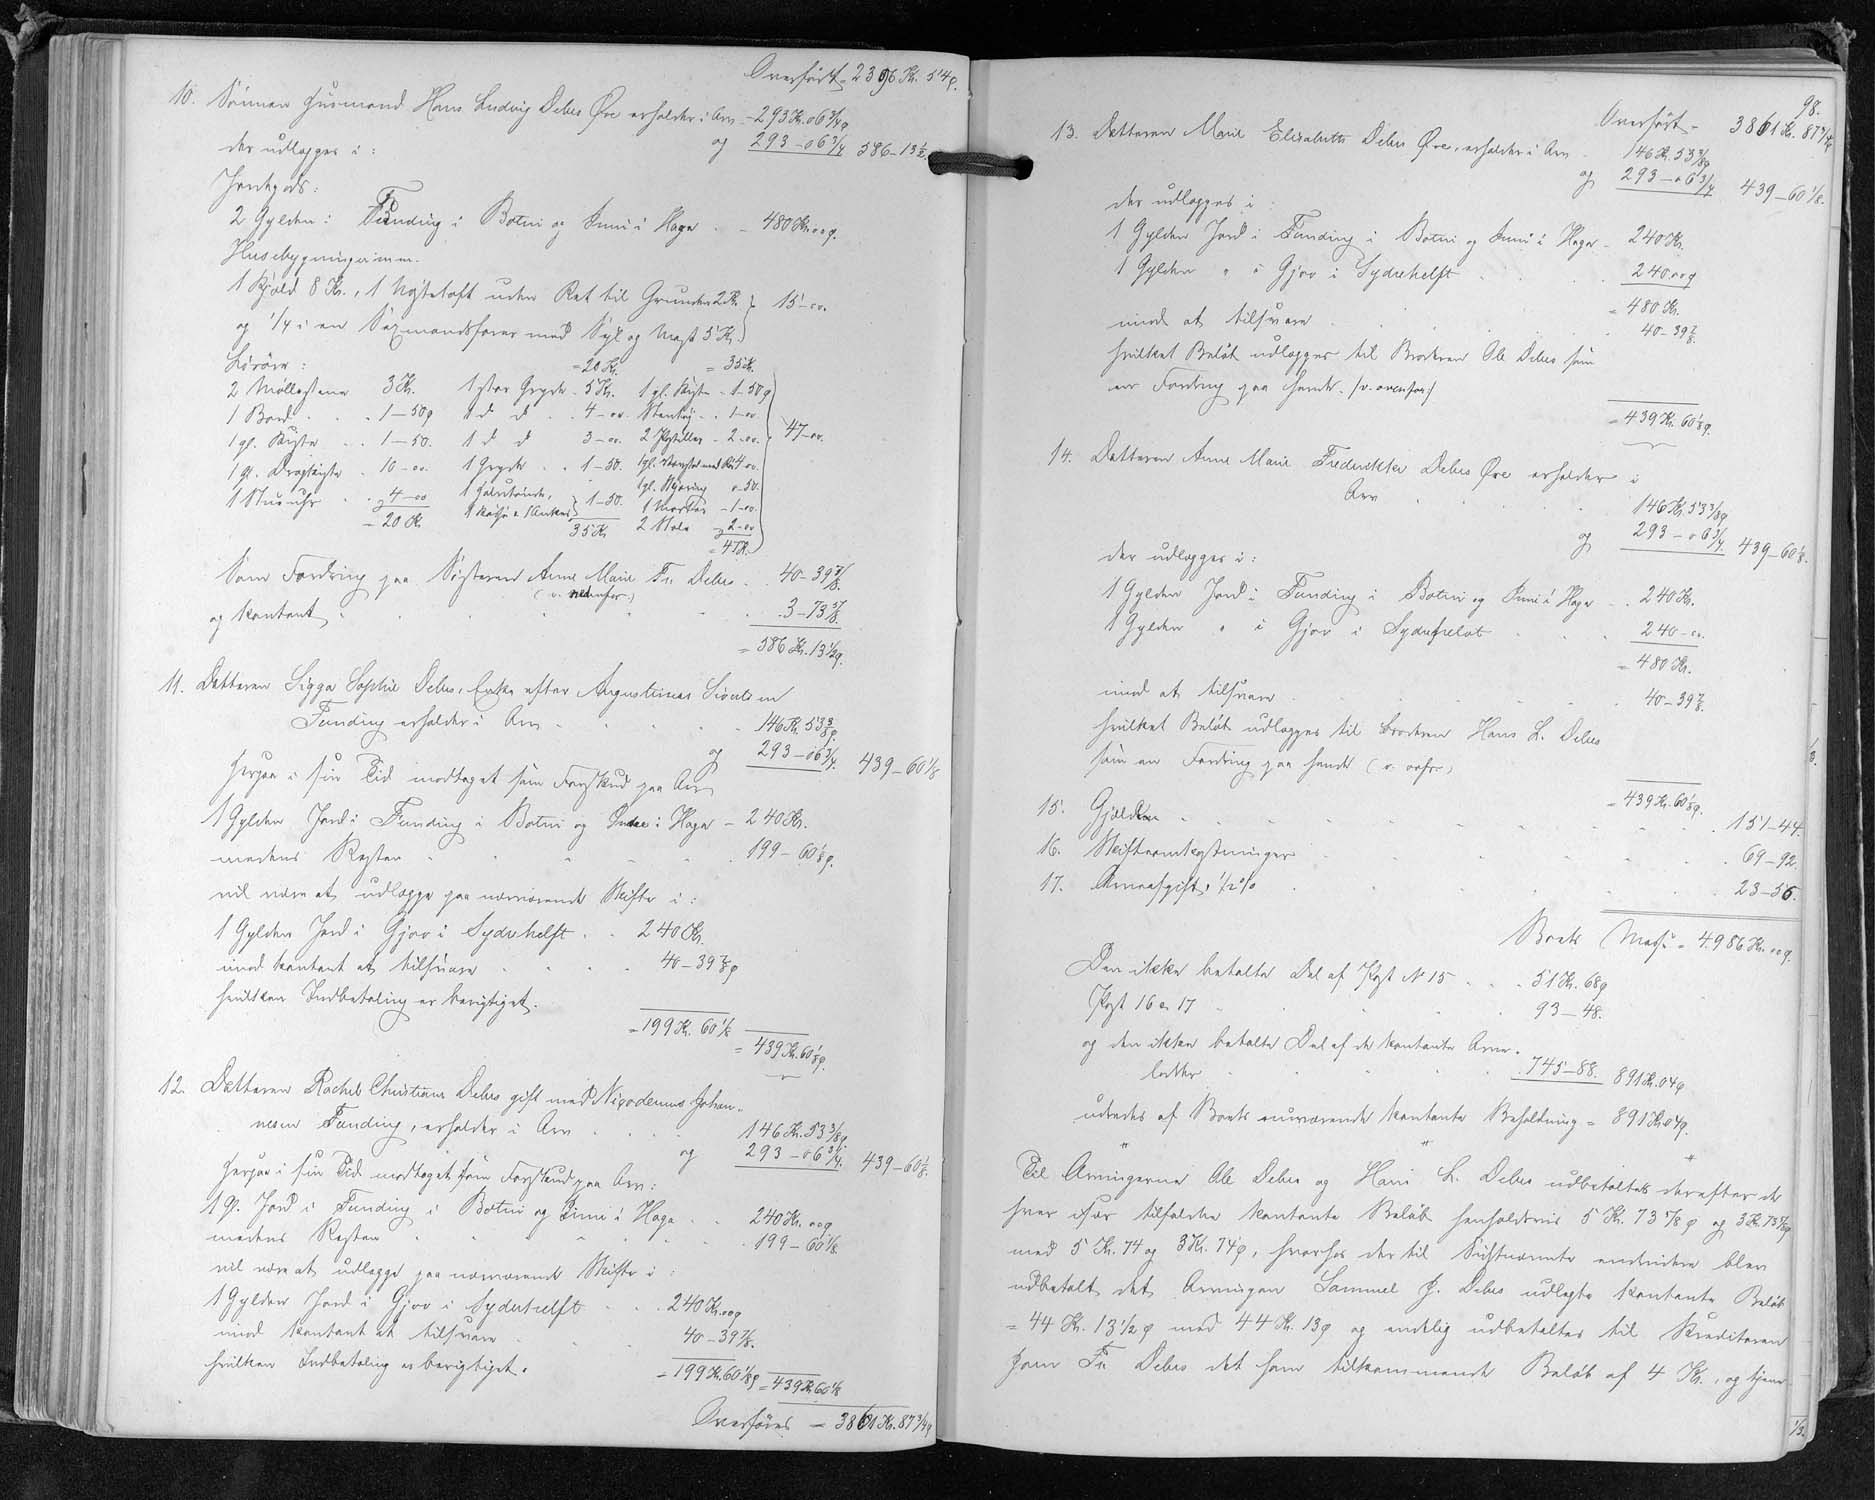 Overført = 2396 Kr. 54 ø.
10. Sønnen Husmand Hans Ludvig Debes Øre erholder i Arv - 293 Kr. 06 3/4 ø
og 293 - 06 3/4 586 - 13 1/2
der udlægges i:
Jordegods:
2 Gylden i Funding i Botni og Inni i Haga - 480 Kr. 00 ø.
Husebygninger m.m.
1 Kjæld 8 Kr., 1 Nøstetoft uden Ret til Grunden 2 Kr.
og 1/4 i en Sexmandsfarer med Sejl og Mast 5 Kr. 15 - 00.
Løsøre: = 20 Kr. = 35 Kr.
2 Møllestene 3 Kr. 1 stor Gryde - 5 Kr. 1 gl. Kiste - 1 - 50 ø
1 Bord 1 - 50 ø 1 d d 4 - 00 Stentøj 1 - 00.
1 gl. Kiste 1 - 50. 1 d d 3 - 00. 2 Postiller - 2 - 00. 47 - 00.
1 gl. Dragkiste - 10 - 00. 1 Gryde 1 - 50. 1 gl. 4 - 00.
1 Stueuhr 4 - 00 1 1 - 50. 1 gl. 0 - 50.
= 20 Kr. 35 Kr. 1 Morter - 1 - 00.
2 Stole 2 - 00
= 47 Kr.
Som Fordring paa Søsteren Anne Marie Fr. Debes 40 - 39 7/8
(v. nedenfor)
og kontant 3 - 73 5/8
= 586 Kr. 13 1/2 ø.
11. Datteren Sigga Sophie Debes, Enke efter Augustinus
Funding erholder i Arv 146 Kr. 53 3/8 ø.
og 293 - 06 3/4. 439 - 60 1/8
herpaa i sin Tid modtaget som Forskud paa Arv
1 Gylden Jord i Funding i Botni og Inni i Haga - 240 Kr.
medens Resten 199 - 60 1/8 ø.
vil være at udlægge paa nærværende Skifte i:
1 Gylden Jord i Gjov i Sydrehelft 240 Kr.
mod kontant at tilsvare 40 - 39 7/8 ø
hvilken Indbetaling er berigtiget.
= 199 Kr. 60 1/8
= 439 Kr. 60 1/8 ø.
12. Datteren Rachel Christiane Debes gift med Nicodemus Johan-
nesen Funding, erholder i Arv 146 Kr. 53 3/8 ø.
og 293 - 06 3/4. 439 - 60 1/8.
herpaa i sin Tid modtaget som Forskud paa Arv:
1 Gl. Jord i Funding i Botni og Inni i Haga 240 Kr. 00 ø
medens Resten 199 - 60 1/8
vil være at udlægge paa nærværende Skifte i:
1 Gylden Jord i Gjov i Sydrehelft 240 Kr. 00 ø
mod kontant at tilsvare 40 - 39 7/8.
hvilken Indbetaling er berigtiget.
= 199 Kr. 60 1/8 ø = 439 Kr. 60 1/8
Overføres = 3861 Kr. 87 3/4 ø
98.
Overført = 3861 Kr. 87 3/4
13. Datteren Marie Elisabeth Debes Øre, erholder i Arv 146 Kr. 53 3/8 ø
og 293 - 06 3/4 439 - 60 1/8.
der udlægges i:
1 Gylden Jord i Funding i Botni og Inni i Haga - 240 Kr.
1 Gylden " i Gjov i Sydrehelft 240.00 ø
= 480 Kr.
mod at tilsvare 40 - 39 7/8.
hvilket Beløb udlægges til Broderen Ole Debes som
en Fordring paa hende. (v. ovenfor)
= 439 Kr. 60 1/8 ø.
14. Datteren Anne Marie Frederikke Debes Øre erholder i
Arv 146 Kr. 53 3/8 ø
og 293 - 06 3/4. 439 - 60 1/8.
der udlægges i:
1 Gylden Jord i Funding i Botni og Inni i Haga 240 Kr.
1 Gylden " i Gjov i Sydrehelft 240 - 00.
= 480 Kr.
mod at tilsvare 40 - 39 7/8.
hvilket Beløb udlægges til Broderen Hans L. Debes
som en Fordring paa hende (v. ovfr.)
= 439 Kr. 60 1/8 ø.
15. Gjælden 151 - 44.
16. Skifteomkostninger 69 - 92.
17. Arveafgift, 1/2 % 23 - 56.
Boets Masse = 4986 Kr. 00 ø.
Den ikke betalte Del af Post No 15 51 Kr. 68 ø
Post 16 og 17 93 - 48.
og den ikke betalte Del af de kontante Arve-
lodder 745 - 88. 891 Kr. 04 ø
udredes af Boets nuværende kontante Beholdning = 891 Kr. 04 ø.
" " "
Til Arvingerne Ole Debes og Hans L. Debes udbetaltes derefter de
hver især tilfaldne kontante Beløb henholdsvis 5 Kr. 73 7/8 ø og 3 Kr. 73 5/8 ø
med 5 Kr. 74 og 3 Kr. 74 ø, hvorhos der til Sidstnævnte endvidere blev
udbetalt det Arvingen Sammel J. Debes udlagte kontante Beløb
= 44 Kr. 13 1/2 ø med 44 Kr. 13 ø og endelig udbetaltes til Kreditoren
Joen Fr. Debes det ham tilkommende Beløb af 4 Kr., og tjene